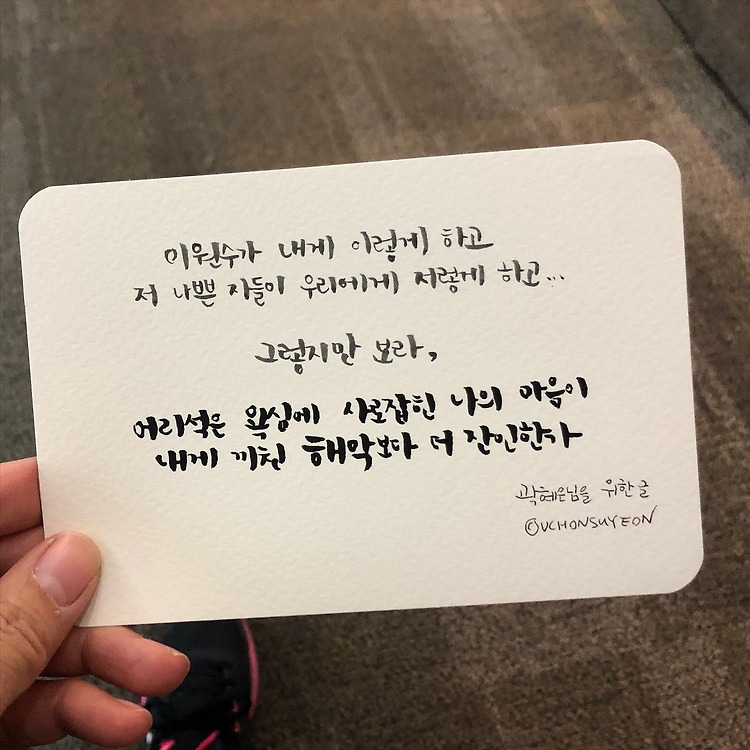 이 원수가 내게 이렇게 하고
저 나쁜 자들이 우리에게 저렇게 하고...
그렇지만 보라,
어리석은 욕심에 사로잡힌 나의 마음이
내게 끼친 해악보다 더 잔인한가
곽혜은님을 위한 글
©UCHONSUYEON